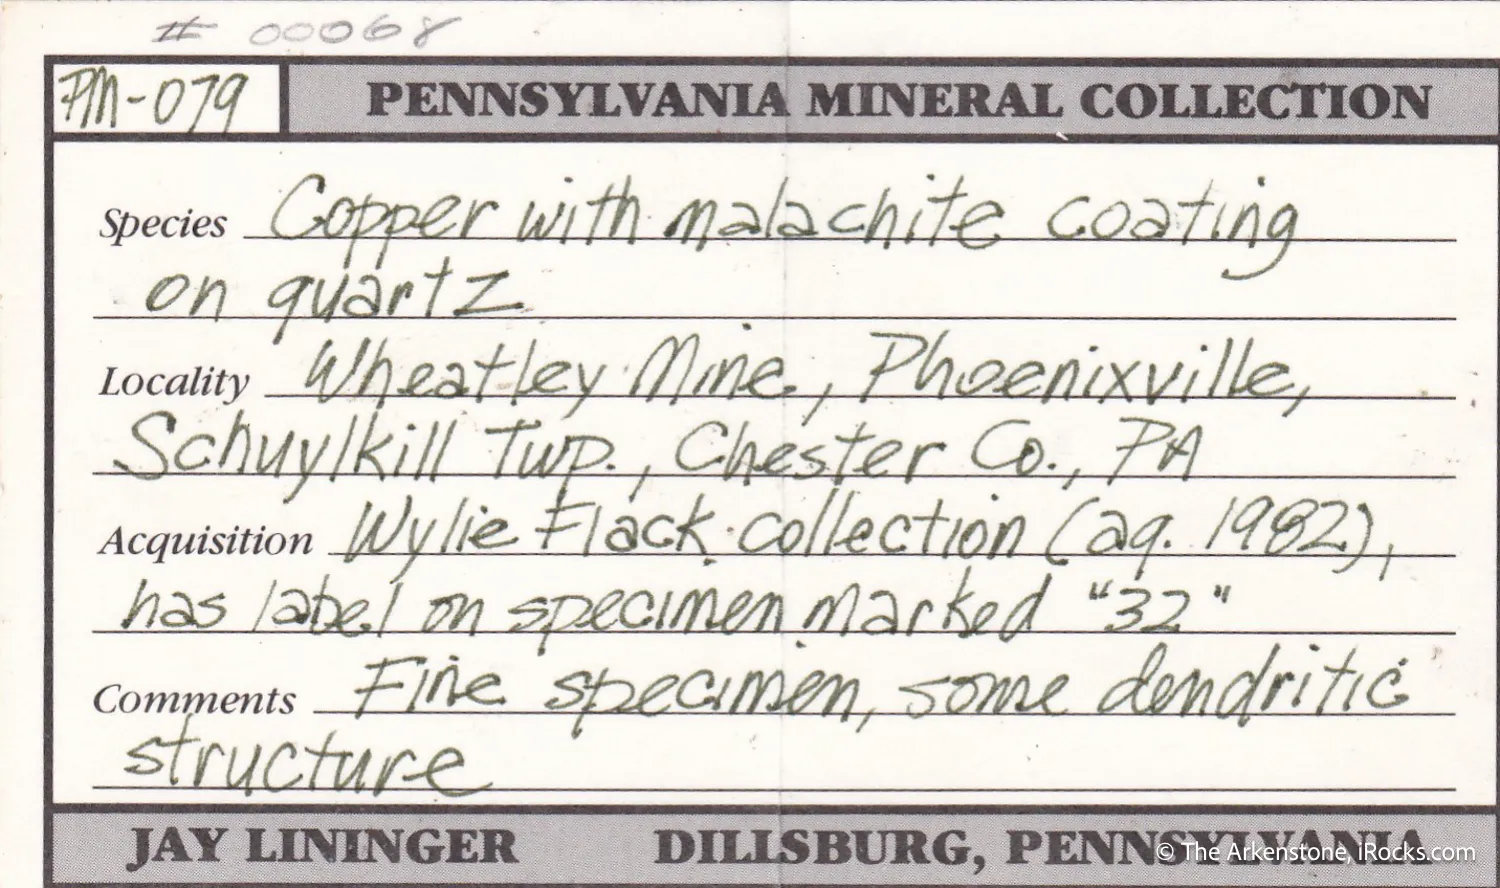 # 00068
PM-079 PENNSYLVANIA MINERAL COLLECTION
Species Copper with malachite coating
on quartz
Locality Wheatley Mine, Phoenixville,
Schuylkill Twp., Chester Co., PA
Acquisition Wylie Flack collection (aq. 1982),
has label on specimen marked "32"
Comments Fine specimen, some dendritic
structure
JAY LININGER DILLSBURG, PENNSYLVANIA
© The Arkenstone, iRocks.com